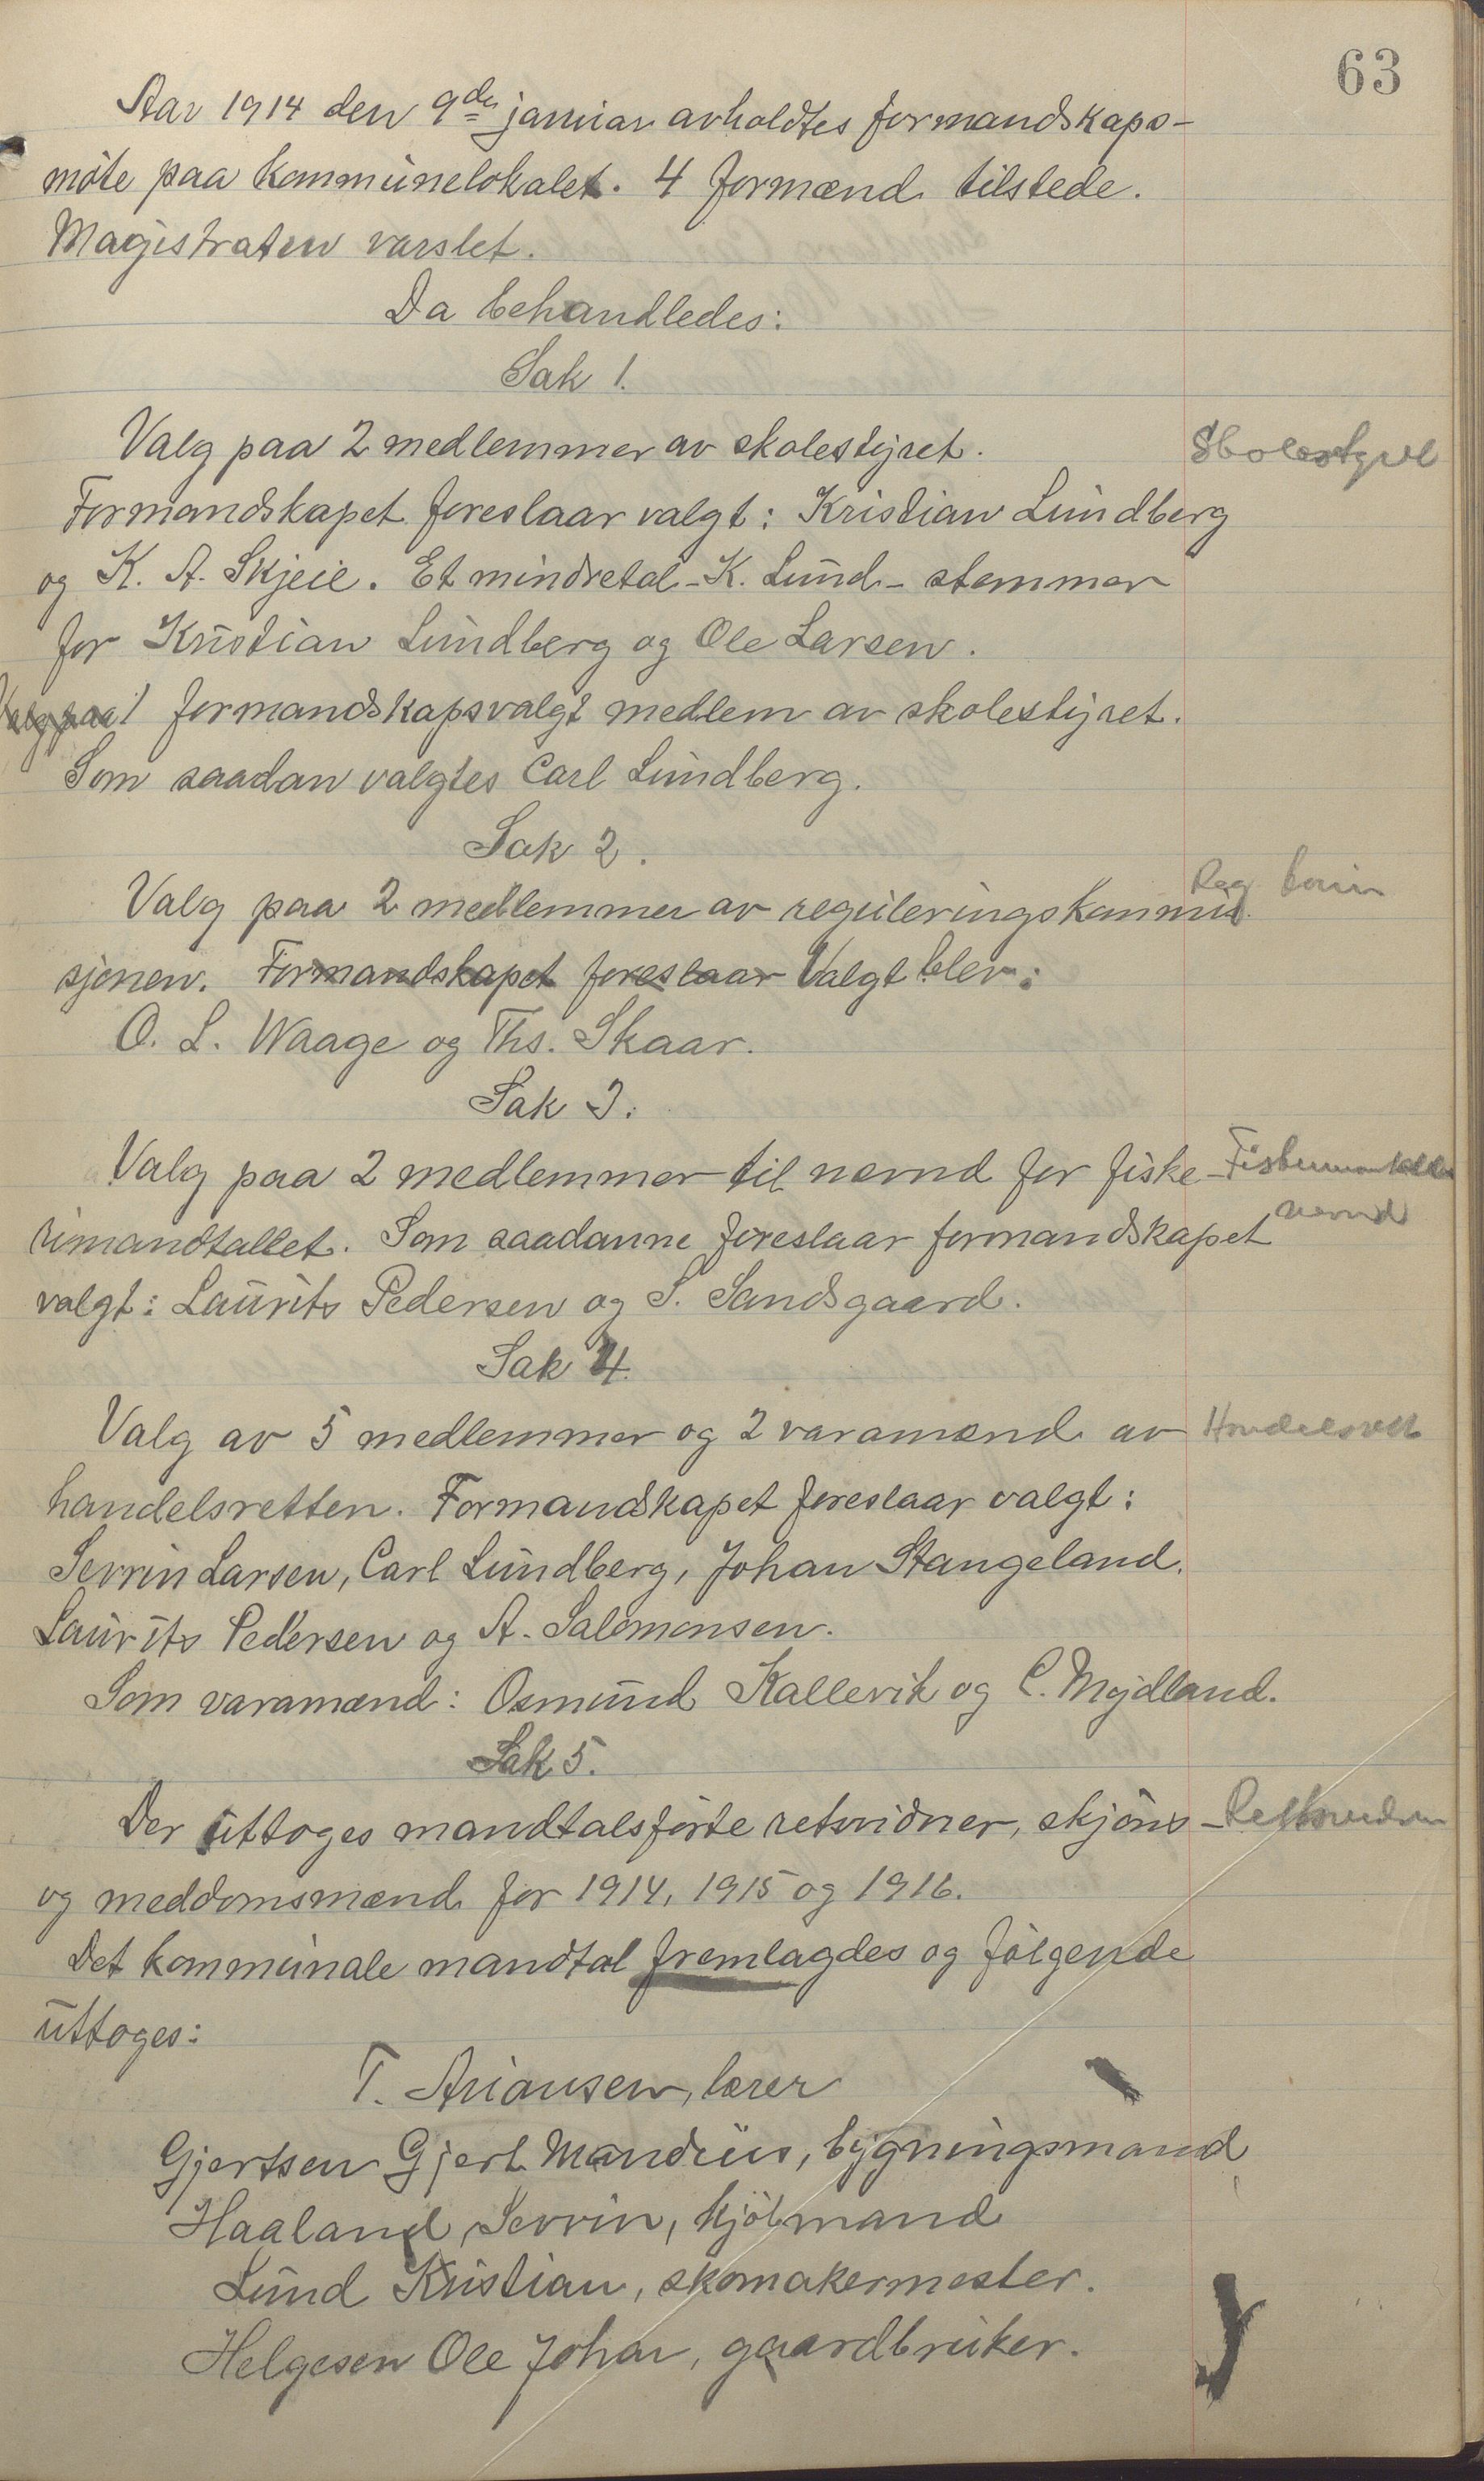 63
Aar 1914 den 9de januar avholdtes formandskaps-
møte paa kommunelokalet. 4 formænd tilstede.
Magistraten varslet.
Da behandledes:
Sak 1.
Valg paa 2 medlemmer av skolestyret.
Skolestyre
Formandskapet foreslaar valgt: Kristian Lundberg
og K. A. Skjeie. Et mindretal - K. Lund - stemmer
for Kristian Lundberg og Ole Larsen.
Valg paa 1 formandskapsvalgt medlem av skolestyret.
Som saadan valgtes Carl Lundberg.
Sak 2.
Reg
Valg paa 2 medlemmer av reguleringskommis
sjonen. Formandskapet foreslaar Valgt blev:
O. L. Waage og Ths. Skaar.
Sak 3.
Valg paa 2 medlemmer til nævnd for fiske-
rimandtallet. Som saadanne foreslaar formandskapet
nævnd
valgt: Laurits Pedersen og S. Sandsgaard.
Sak 4.
Valg av 5 medlemmer og 2 varamænd av
Handelsrett
handelsretten. Formandskapet foreslaar valgt:
Sevrin Larsen, Carl Lundberg, Johan Stangeland.
Laurits Pedersen og A. Salomonsen.
Som varamænd: Osmund Kallevik og C. Mydland.
Sak 5.
Der uttoges mandtalsførte retsvidner, skjøns-
og meddomsmænd for 1914, 1915 og 1916.
Det kommunale mandtal fremlagdes og følgende
uttoges:
T. Ariansen, lærer
Gjertsen Gjert Mandius, bygningsmand
Haaland, Sevrin, kjølmand
Lund Kristian, skomakermester.
Helgesen Ole Johan, gaardbruker.